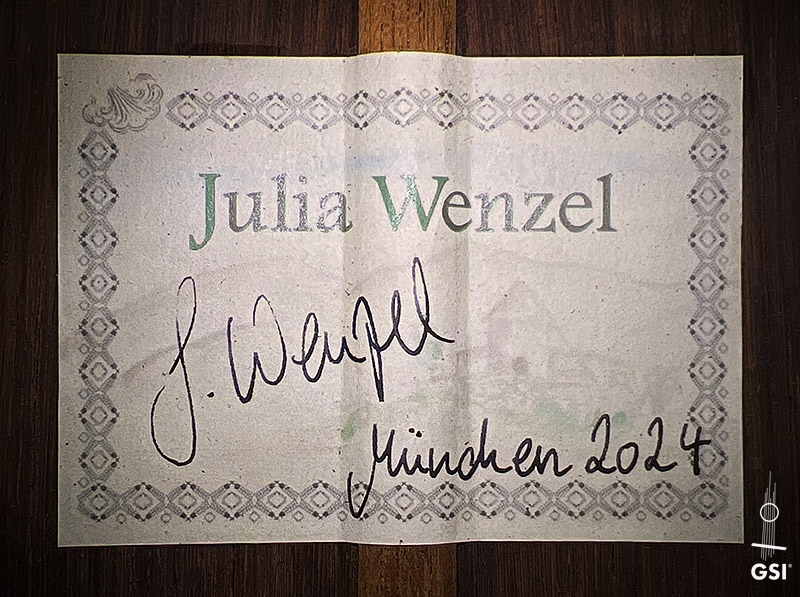 Julia Wenzel
J. Wenzel
München 2024
GSI